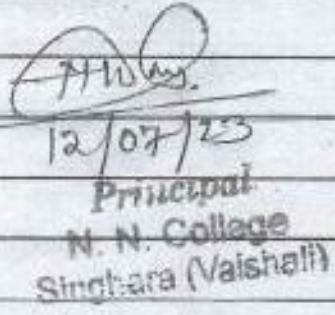 12/07/23
Principal
N. N. College
Singhara (Vaishali)